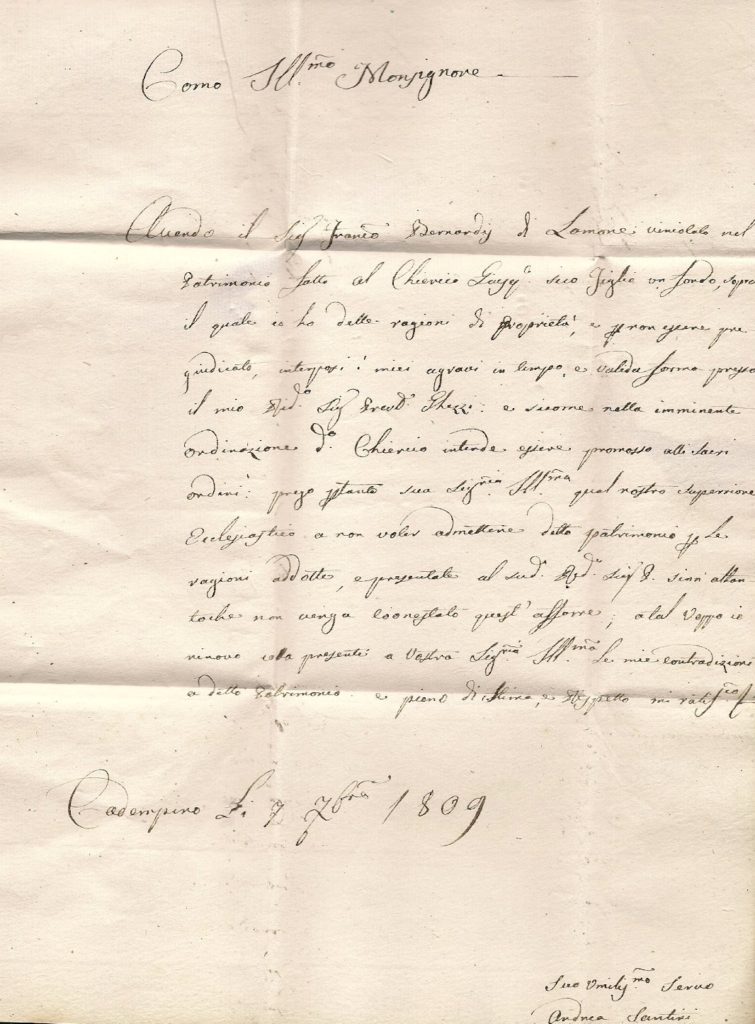 Como Ill.mo Monsignore
Avendo il Sig.r Franc.o Bernardij di Lamone vincolato nel
Patrimonio fatto al Chierico suo Figlio un fondo, sopra
il quale io ho delle ragioni di proprietà, e p non essere pre
giudicato, interposi i miei agravi in tempo, e valida forma presso
il mio Rd.o Sig.r Ghezzi e sicome nella imminente
ordinazione d.o Chierico intende essere promosso alli sacri
ordini prego ptanto sua Sig.ria Ill.ma qual nostro superriore
Ecclesiastico a non voler admettere detto patrimonio p Le
ragioni addotte, e presentate al sud.o Rd.o Sig.r
toche non venga quest' affare; a tal io
rinovo colla presente a Vostra Sig.ria Ill.ma Le mie contradizioni
a detto Patrimonio e pieno di stima, e Rispetto mi
Cadempino Li 7 7bre 1809
Suo Umilis.mo Servo
Andrea Santini